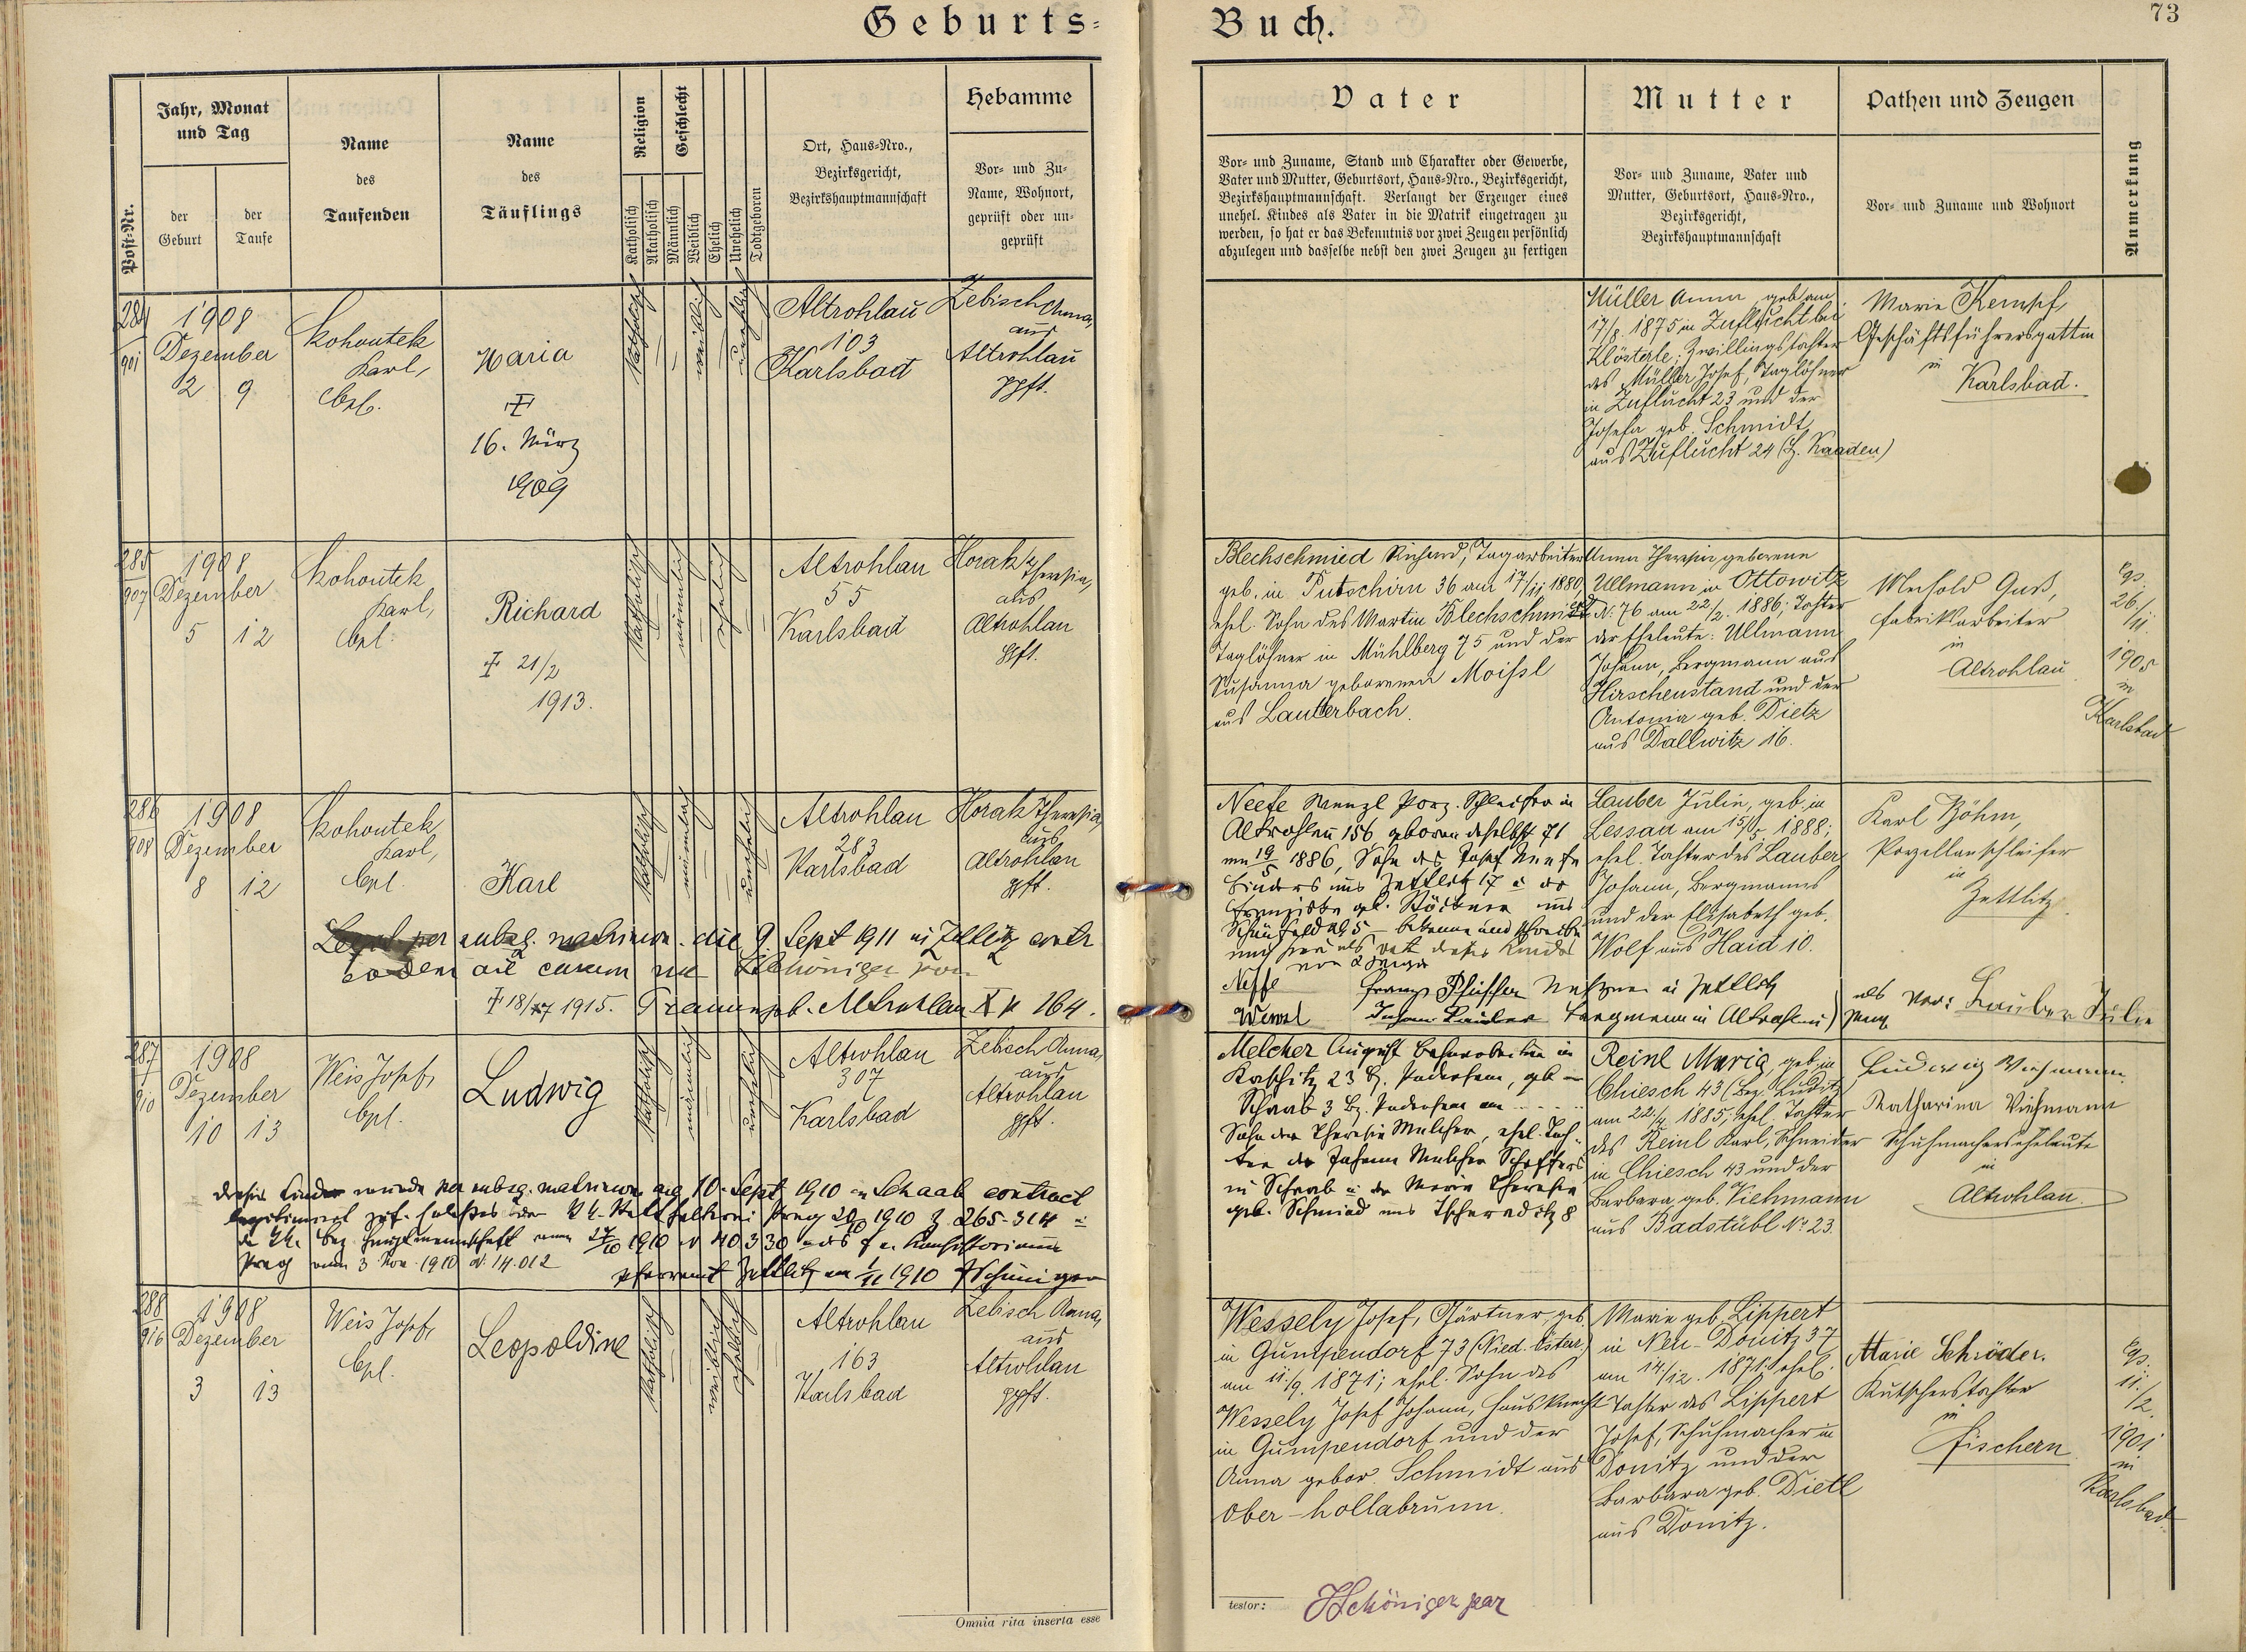 Geburts=
Buch.
73
Post-Nr.
Jahr, Monat
und Tag
der
Geburt
der
Taufe
Name
des
Taufenden
Name
des
Täuflings
Religion
Katholisch
Akatholisch
Geschlecht
Männlich
Weiblich
Ehelich
Unehelich
Todtgeboren
Ort, Haus-Nro.,
Bezirksgericht,
Bezirkshauptmannschaft
Hebamme
Vor- und Zu-
Name, Wohnort,
geprüft oder un-
geprüft
Vater
Vor- und Zuname, Stand und Charakter oder Gewerbe,
Vater und Mutter, Geburtsort, Haus-Nro., Bezirksgericht,
Bezirkshauptmannschaft. Verlangt der Erzeuger eines
unehel. Kindes als Vater in die Matrik eingetragen zu
werden, so hat er das Bekenntnis vor zwei Zeugen persönlich
abzulegen und dasselbe nebst den zwei Zeugen zu fertigen
Mutter
Vor- und Zuname, Vater und
Mutter, Geburtsort, Haus-Nro.,
Bezirksgericht,
Bezirkshauptmannschaft
Pathen und Zeugen
Vor- und Zuname und Wohnort
Anmerkung
284
901
1908
Dezember
2 9
Kohoutek
Karl,
Cpl.
Maria
†
16. März
1909
katholisch
weiblich
unehelich
Altrohlau
103
Karlsbad
Zebisch Anna,
aus
Altrohlau
gpft.
Müller Anna, geb. am
17/8 1875 in Zuflucht bei
Klösterle; Zwillingstochter
des Müller Josef, Taglöhner
in Zuflucht 23 und der
Josefa geb. Schmidt
aus Zuflucht 24 (H. Kaaden)
Marie Kempf,
Geschäftsführersgattin
in
Karlsbad.
285
907
1908
Dezember
5 12
Kohoutek
Karl,
Cpl.
Richard
† 21/2
1913.
katholisch
männlich
ehelich
Altrohlau
55
Karlsbad
Horak Theresia,
aus
Altrohlau
gpft.
Blechschmied Richard, Tagarbeiter
geb. in Putschirn 36 am 17/11 1880,
ehel. Sohn des Martin Blechschmied
Taglöhner in Mühlberg 75 und der
Susanna geborenen Moissl
aus Lauterbach.
Anna Theresia geborene
Ullmann in Ottowitz
N. 76 am 22/2. 1886; Tochter
der Eheleute: Ullmann
Johann, Bergmann aus
Hirschenstand und der
Antonia geb. Dietz
aus Dallwitz 16.
Fabriksarbeiter
in
Altrohlau
Cps.
26./
11.
1905
in
Karlsbad
286
908
1908
Dezember
8 12
Kohoutek
Karl,
Cpl.
Karl
katholisch
männlich
unehelich
Altrohlau
283
Karlsbad
Horak Theresia,
aus
Altrohlau
gpft.
Legit. per subsq. matrimon. die 9. Sept 1911 in Zettlitz contr
† 18/7 1915. Trauungsb. Altrohlau X p 164.
Neefe Wenzl Porz. Schleifer in
Altrohlau 156 geboren daselbst 71
am 19/5 1886, Sohn des Josef Neefe
Franziska geb.
Wenzel
Lauber Julie, geb. in
Lessau am 15/5. 1888;
ehel. Tochter des Lauber
Johann, Bergmanns
und der Elisabeth geb.
Wolf aus Haid 10.
Karl Böhm,
Porzellanschleifer
in
Zettlitz
Lauber Julie
287
910
1908
Dezember
10 13
Weis Josef,
Cpl.
Ludwig
katholisch
männlich
unehelich
Altrohlau
307
Karlsbad
Zebisch Anna,
aus
Altrohlau
gpft.
wurde per subsq. matrimon. 10. Sept 1910 in Schaab contract
Prag vom 3. Nov. 1910 N. 14.012
Pfarramt Zettlitz am 1/11 1910 JSchöniger
Melcher August
Sohn der Theresia Melcher, ehel. Toch-
ter des Johann Melcher
in Schaab u. der Maria Theresia
geb. Schmied aus
Reinl Maria, geb. in
Chiesch 43 (Bez. Luditz)
am 22./4 1885, ehel. Tochter
des Reinl Karl, Schneider
in Chiesch 43 und der
Barbara geb. Viehmann
aus Badstübl No 23.
Ludwig Viehmann
Katharina Viehmann
Schuhmacherseheleute
in
Altrohlau.
288
916
1908
Dezember
3 13
Weis Josef,
Cpl.
Leopoldine
katholisch
weiblich
ehelich
Altrohlau
163
Karlsbad
Zebisch Anna,
aus
Altrohlau
gpft.
Wessely Josef, Gärtner, geb.
in Gumpendorf 73 (Nied. Österr.)
am 11./9. 1871; ehel. Sohn des
Wessely Josef Johann, Hausknecht
in Gumpendorf und der
Anna gebor. Schmidt aus
Ober-hollabrunn.
Marie geb. Lippert
in Neu-Donitz 37
am 14./12. 1871; ehel.
Tochter des Lippert
Josef, Schuhmacher in
Donitz und der
Barbara geb. Dietl
aus Donitz.
Marie Schröder.
Kutscherstochter
in
Fischern
Cps.
11./
/2.
1901
in
Karlsbad.
Omnia rita inserta esse
testor:
JSchöniger par